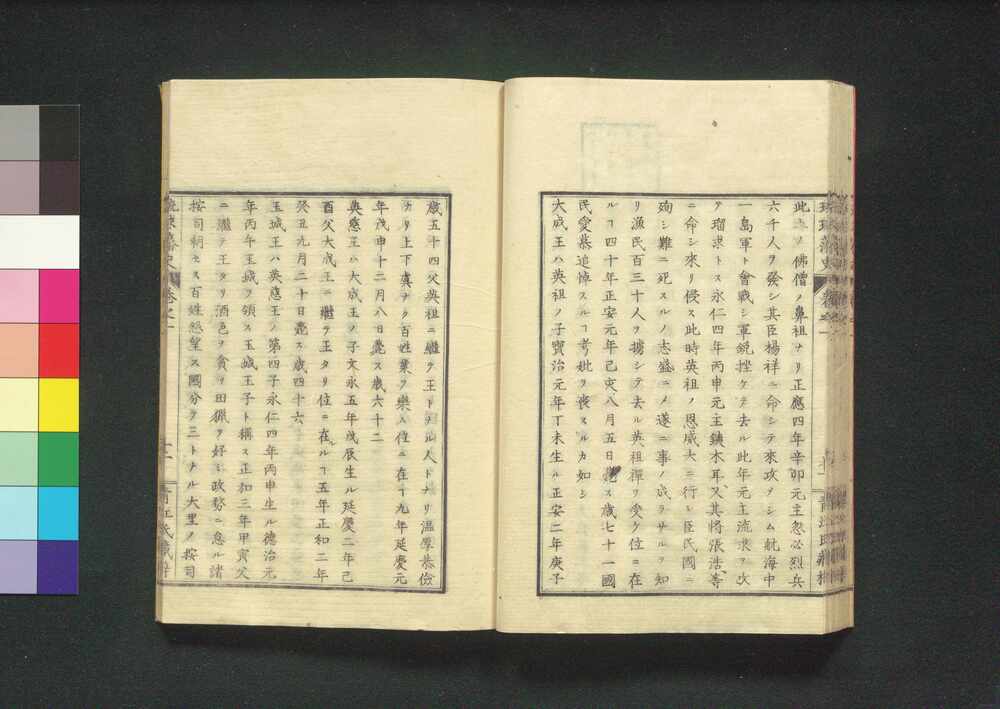 此土ノ佛僧ノ鼻祖ナリ正應四年辛卯元主忽必烈兵
六千人ヲ發シ其臣楊祥ニ命シテ來攻ヲシム航海中
一島軍ト會戰シ軍鋭挫ケテ去ル此年元主流求ヲ改
ヲ瑠求トス永仁四年丙申元主鐵木耳又其將張浩等
ニ命シ來リ侵ス此時英祖ノ恩威大ニ行レ臣民國ニ
殉シ難ニ死スルノ志盛ニメ遂ニ事ノ成ラサルヲ知
リ漁民百三十人ヲ擄シテ去ル英祖禪ヲ受ケ位ニ在
ルヿ四十年正安元年己亥八月五日薨ス歳七十一國
民愛慕追悼スルヿ考妣ヲ喪スルカ如シ
大成王ハ英祖ノ子寶治元年丁未生ル正安二年庚子
歳五十四父英祖ニ繼テ王トナル人トナリ温厚恭儉
ナリ上下虞ナク百姓業ヲ樂ム位ニ在ルヿ九年延慶元
年戊申十二月八日薨ス歳六十二
英慈王ハ大成王ノ子文永五年戊辰生ル延慶二年己
酉父大成王ニ繼テ王タリ位ニ在ルヿ五年正和二年
癸丑九月二十日薨ス歳四十六
玉城王ハ英慈王ノ第四子永仁四年丙申生ル德治元
年丙午玉城ヲ領ス玉城王子ト稱ス正和三年甲寅父
ニ繼テ王タリ酒色ヲ貪リ田獵ヲ好ミ政務ニ怠ル諸
按司朝セス百姓怨望ス國分テ三トナル大里ノ按司
琉球藩史 卷之一
十一